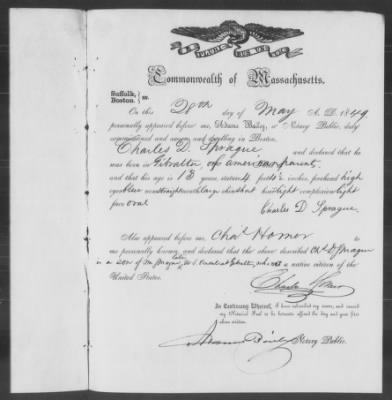 E PLURIBUS UNUM
Commonwealth of Massachusetts.
Suffolk,
Boston. } ss.
On this 28th day of May A. D. 1849
personally appeared before me, Adams Bailey, a Notary Public, duly
commissioned and sworn, and dwelling in Boston,
Charles D. Sprague and declared that he
was born in Gibralta, of American parents
and that his age is 18 years stature 4 feet inches, forehead high
eyes blue nose straight mouth large chin hair light complexion light
face oval
Charles D Sprague
Also appeared before me, Chas Homer to
me personally known, and declared that the above described Ch. D Sprague
is a son of Sprague late U S Consul at Gibralt, a native citizen of the
United States.
Charles Homer
In Testimony Whereof, I have subscribed my name, and caused
my Notarial Seal to be hereunto affixed the day and year first
above written.
Adams Bailey Notary Public.